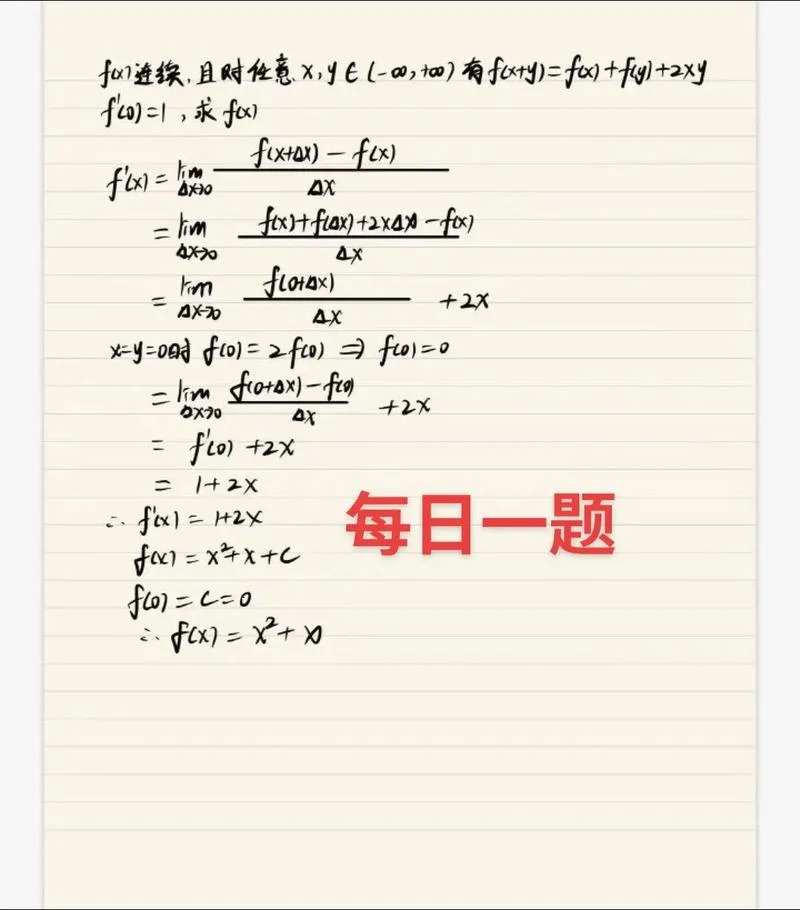 f(x)连续,且对任意x,y∈(-∞,+∞)有f(x+y)=f(x)+f(y)+2xy
f'(0)=1,求f(x)
f'(x)=lim Δx→0 f(x+Δx)-f(x) / Δx
=lim Δx→0 f(x)+f(Δx)+2xΔx-f(x) / Δx
=lim Δx→0 f(0+Δx) / Δx +2x
x=y=0时 f(0)=2f(0) ⇒ f(0)=0
=lim Δx→0 f(0+Δx)-f(0) / Δx +2x
= f'(0)+2x
= 1+2x
∴ f'(x)=1+2x
每日一题
f(x)=x²+x+C
f(0)=C=0
∴ f(x)=x²+x